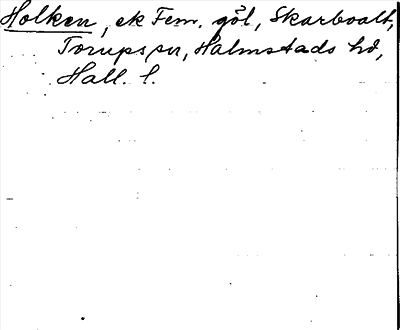 Holken, ek Fem. göl, Skarboalt,
Torups sn, Halmstads hd,
Hall. l.